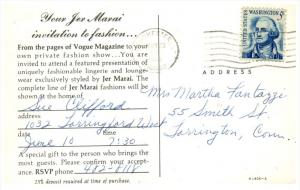 Your Jer Marai
invitation to fashion...
From the pages of Vogue Magazine to your
own private fashion show... You are
invited to attend a featured presentation of
uniquely fashionable lingerie and lounge-
wear exclusively styled by Jer Marai. The
complete line of Jer Marai fashions will be
shown at the home of
Sue Clifford
address
1032 Torringford West
date time
June 10 7:30
A special gift to the person who brings the
most guests. Please confirm your accept-
ance. RSVP phone 482-8118
25% deposit required at time of purchase.
WASHINGTON 5c
ADDRESS
Mrs Martha Fantazzi
55 Smith St.
Torrington, Conn.